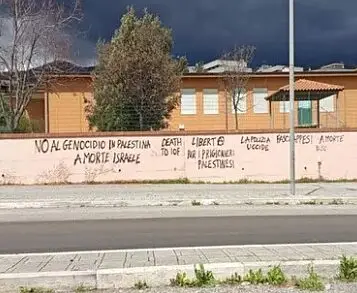 NO AL GENOCIDIO IN PALESTINA
A MORTE ISRAELE
DEATH
TO IOF
LIBERTÀ
PER I PRIGIONIERI
PALESTINESI
LA POLIZIA
UCCIDE
A MORTE